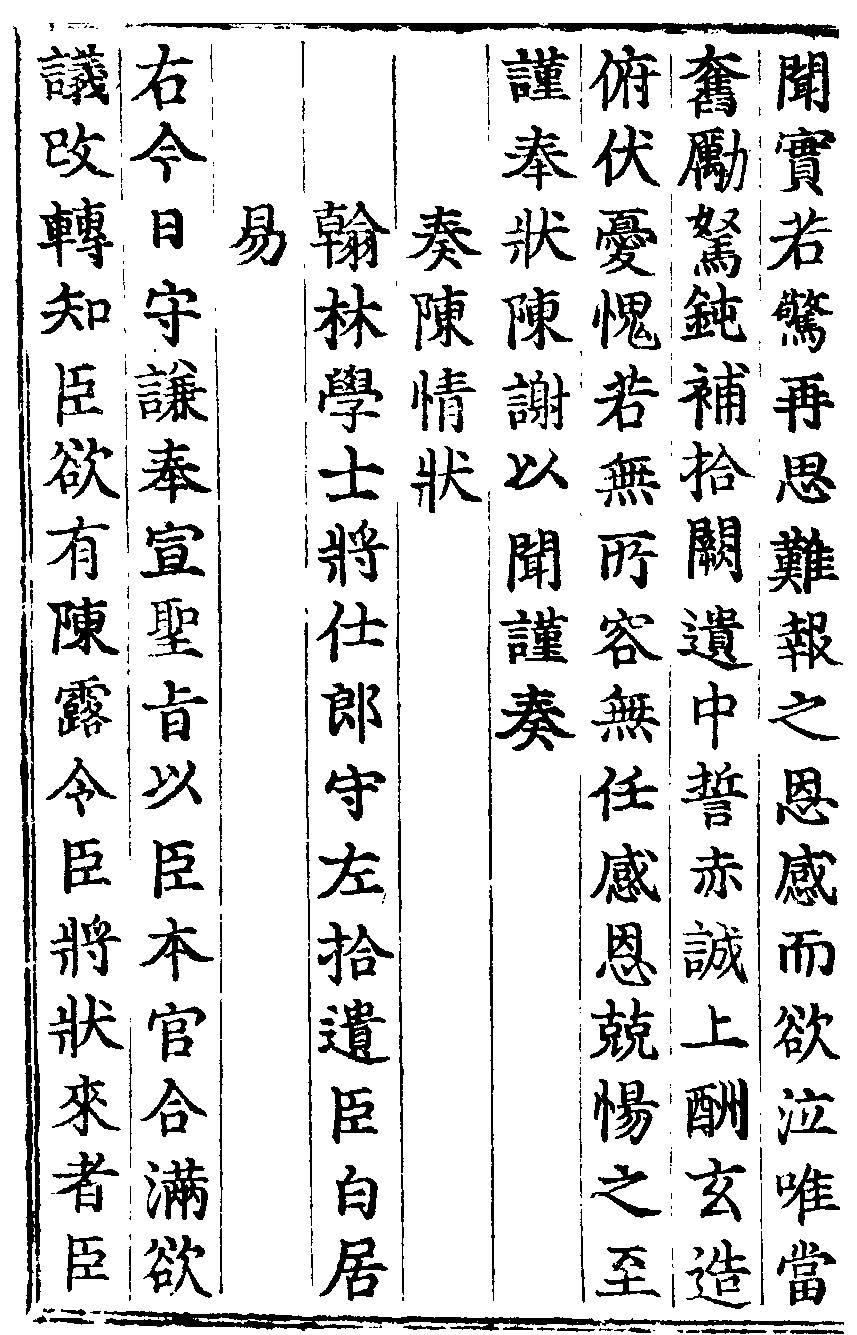 聞實若驚再思難報之恩感而欲泣唯當
奮勵駑鈍補拾闕遺中誓赤誠上酬玄造
俯伏憂愧若無所容無任感恩兢惕之至
謹奉狀陳謝以聞謹奏
奏陳情狀
翰林學士將仕郎守左拾遺臣白居
易
右今日守謙奉宣聖旨以臣本官合滿欲
議改轉知臣欲有陳露令臣將狀來者臣